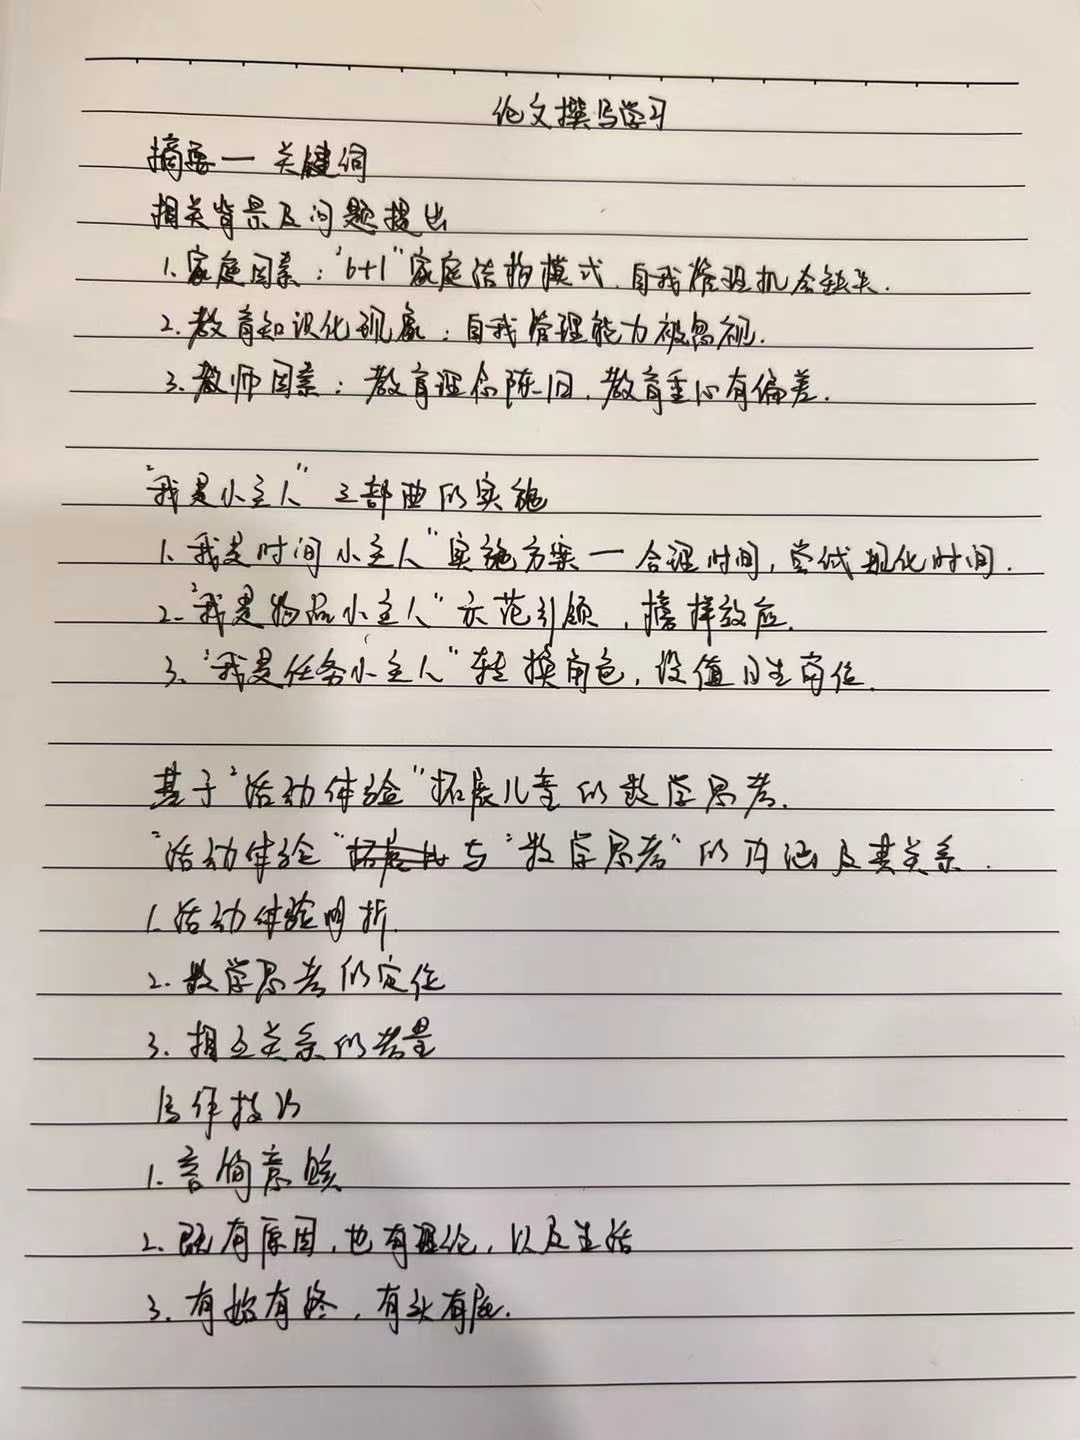 论文撰写学习
摘要一关键词
相关背景及问题提出
1.家庭因素："6+1"家庭结构模式,自我管理机会缺失.
2.教育知识化现象:自我管理能力被忽视.
3.教师因素:教育理念陈旧,教育重心有偏差.
"我是小主人"三部曲的实施
1.我是时间小主人"实施方案一合理时间,尝试规化时间.
2."我是物品小主人"示范引领,榜样效应.
3."我是任务小主人"转换角色,设值日生岗位.
基于"活动体验"拓展儿童的数学思考.
"活动体验"与"数学思考"的内涵及其关系.
1.活动体验明析.
2.数学思考的定位
3.相互关系的考量
写作技巧
1.言简意赅
2.既有原因,也有理论,以及生活
3.有始有终,有头有尾.